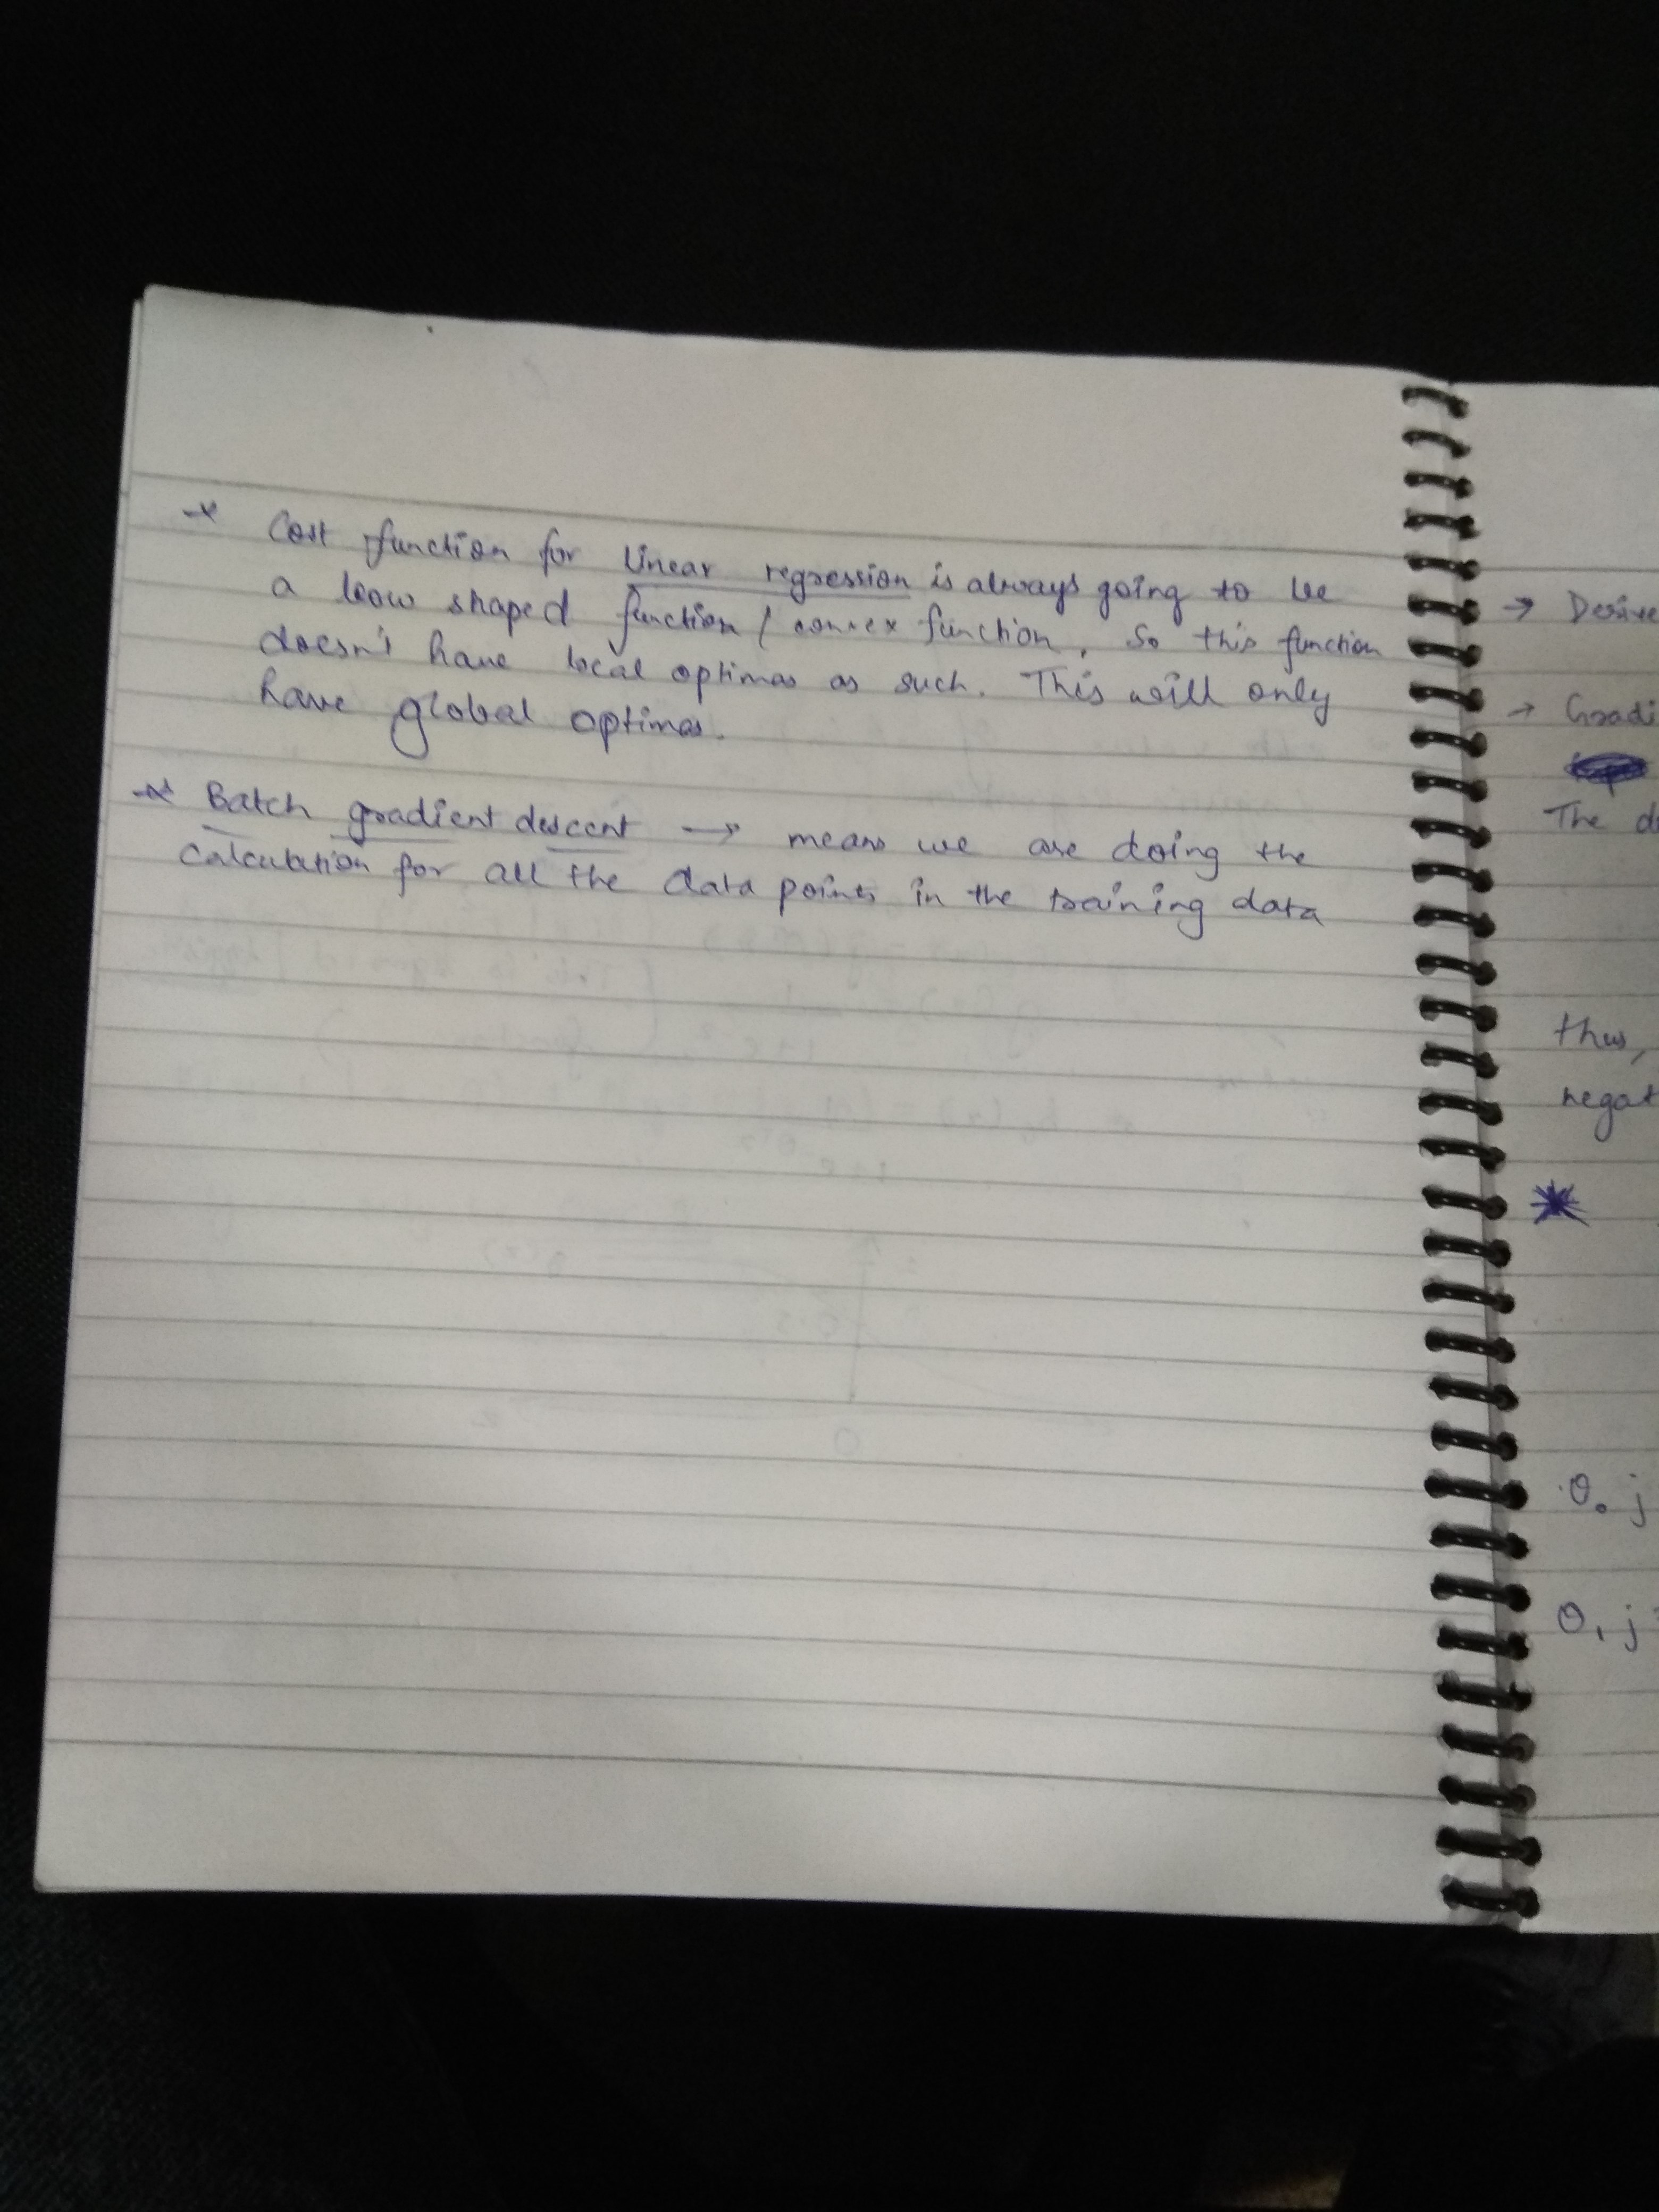 * Cost function for linear regression is always going to be
a bow shaped function / convex function. So this function
doesn't have local optimas as such. This will only
have global optimas.
* Batch gradient descent → means we are doing the
calculation for all the data points in the training data
→ Derive
→ Gradi
The d
thus,
negat
*
θ₀ j
θ₁ j